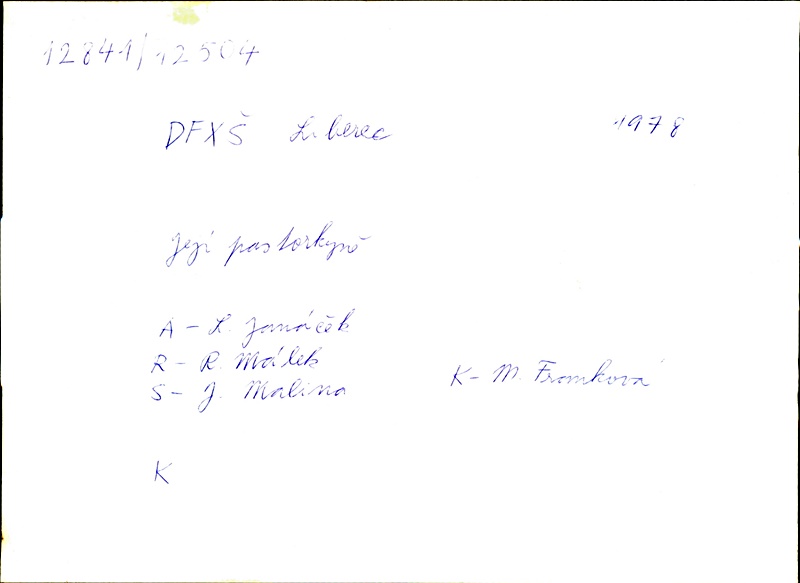 12841/12504
DFXŠ Liberec 1978
Její pastorkyně
A - L. Janáček
R - R. Málek
S - J. Malina K - M. Fromková
K